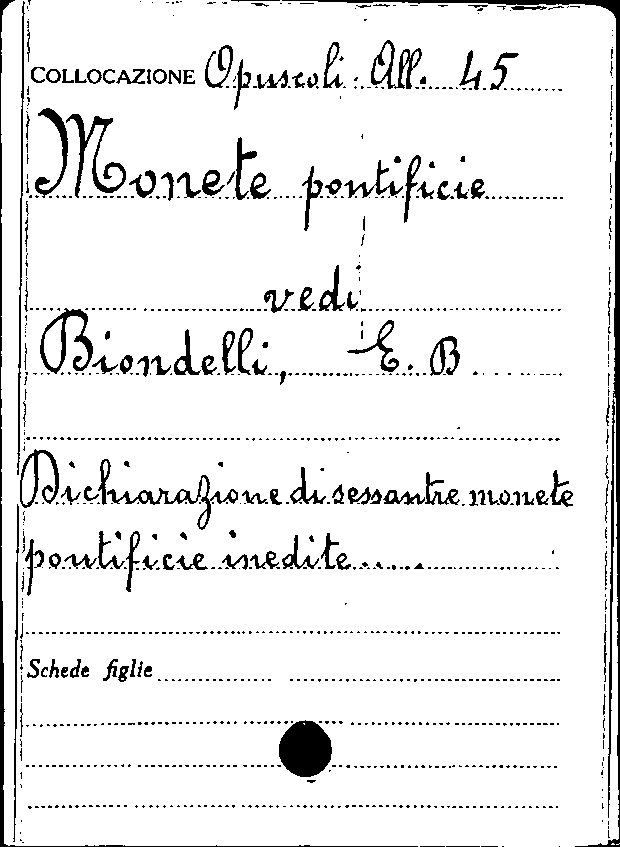 COLLOCAZIONE Opuscoli. All. 45
Monete pontificie
vedi
Biondelli, E. B
Dichiarazione di sessantre monete
pontificie inedite.....
Schede figlie